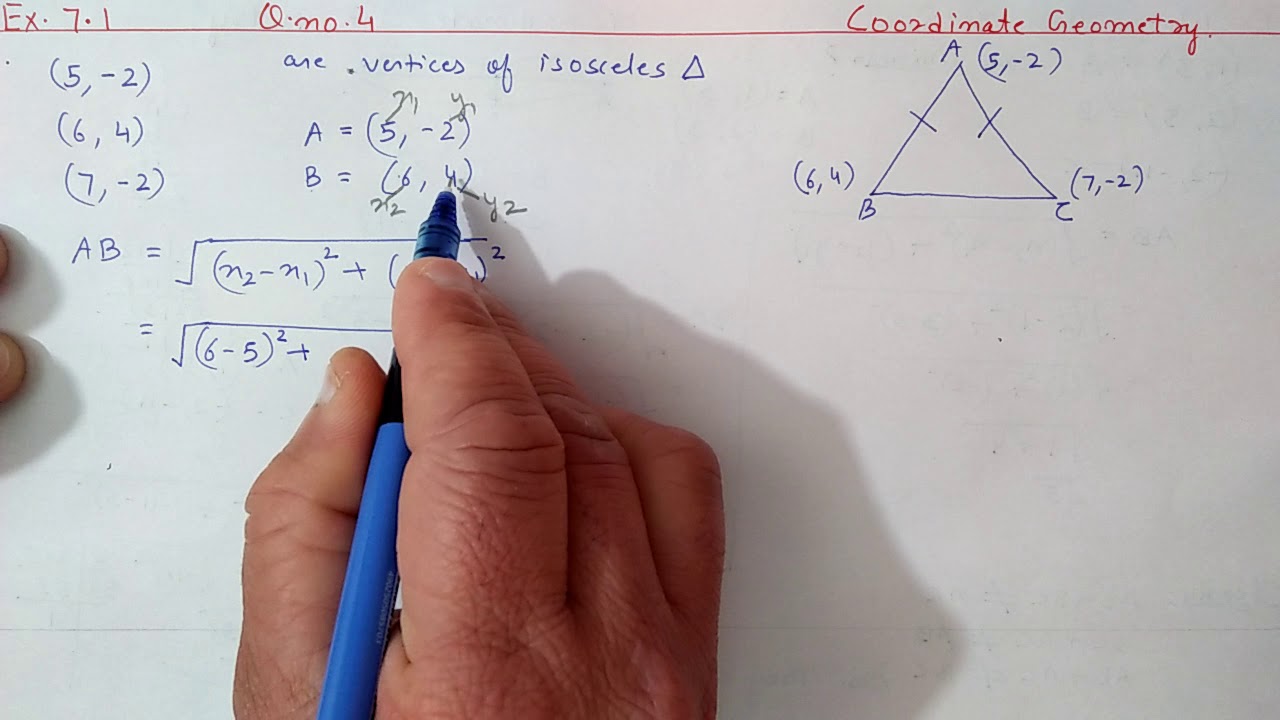 Ex. 7.1 Q.no.4 Coordinate Geometry.
(5, -2) are vertices of isosceles Δ
(6, 4)
(7, -2)
x₁ y₁
A = (5, -2)
B = (6, 4)
x₂ y₂
AB = √(x₂-x₁)² + ( ₁)²
= √(6-5)² +
A (5, -2)
(6, 4) (7, -2)
B C